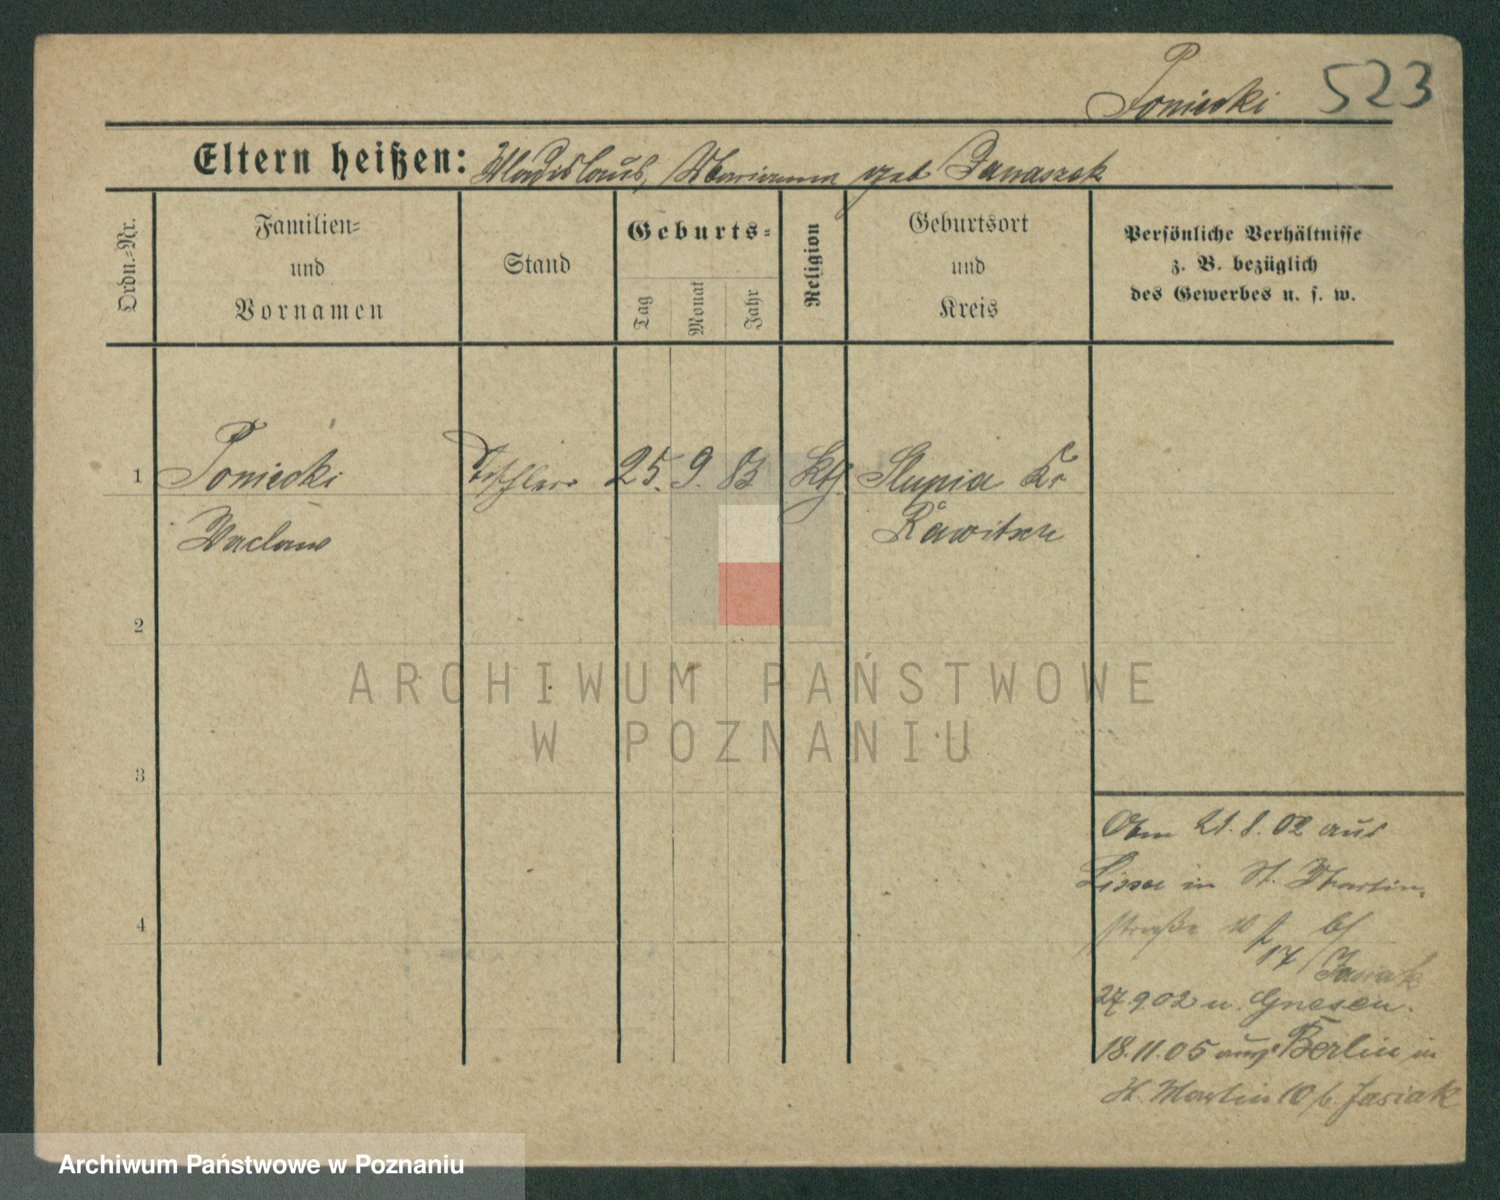 Poniecki 523
Eltern heißen: Wladislaus, Marianna geb Janaszak
Ordn.-Nr.
Familien-
und
Vornamen
Stand
Geburts-
Tag
Monat
Jahr
Religion
Geburtsort
und
Kreis
Persönliche Verhältnisse
z. B. bezüglich
des Gewerbes u. s. w.
1 Poniecki Tischler 25. 9. 83 kth. Slupia Kr
Waclaw Rawitsch
2
3
4
21.8.02 aus
Lissa in St. Martin-
straße 10 bei
17 Jasiak
27.9.02 n. Gnesen.
18.11.05 aus Berlin in
St. Martin 10 b. Jasiak
ARCHIWUM PAŃSTWOWE
W POZNANIU
Archiwum Państwowe w Poznaniu